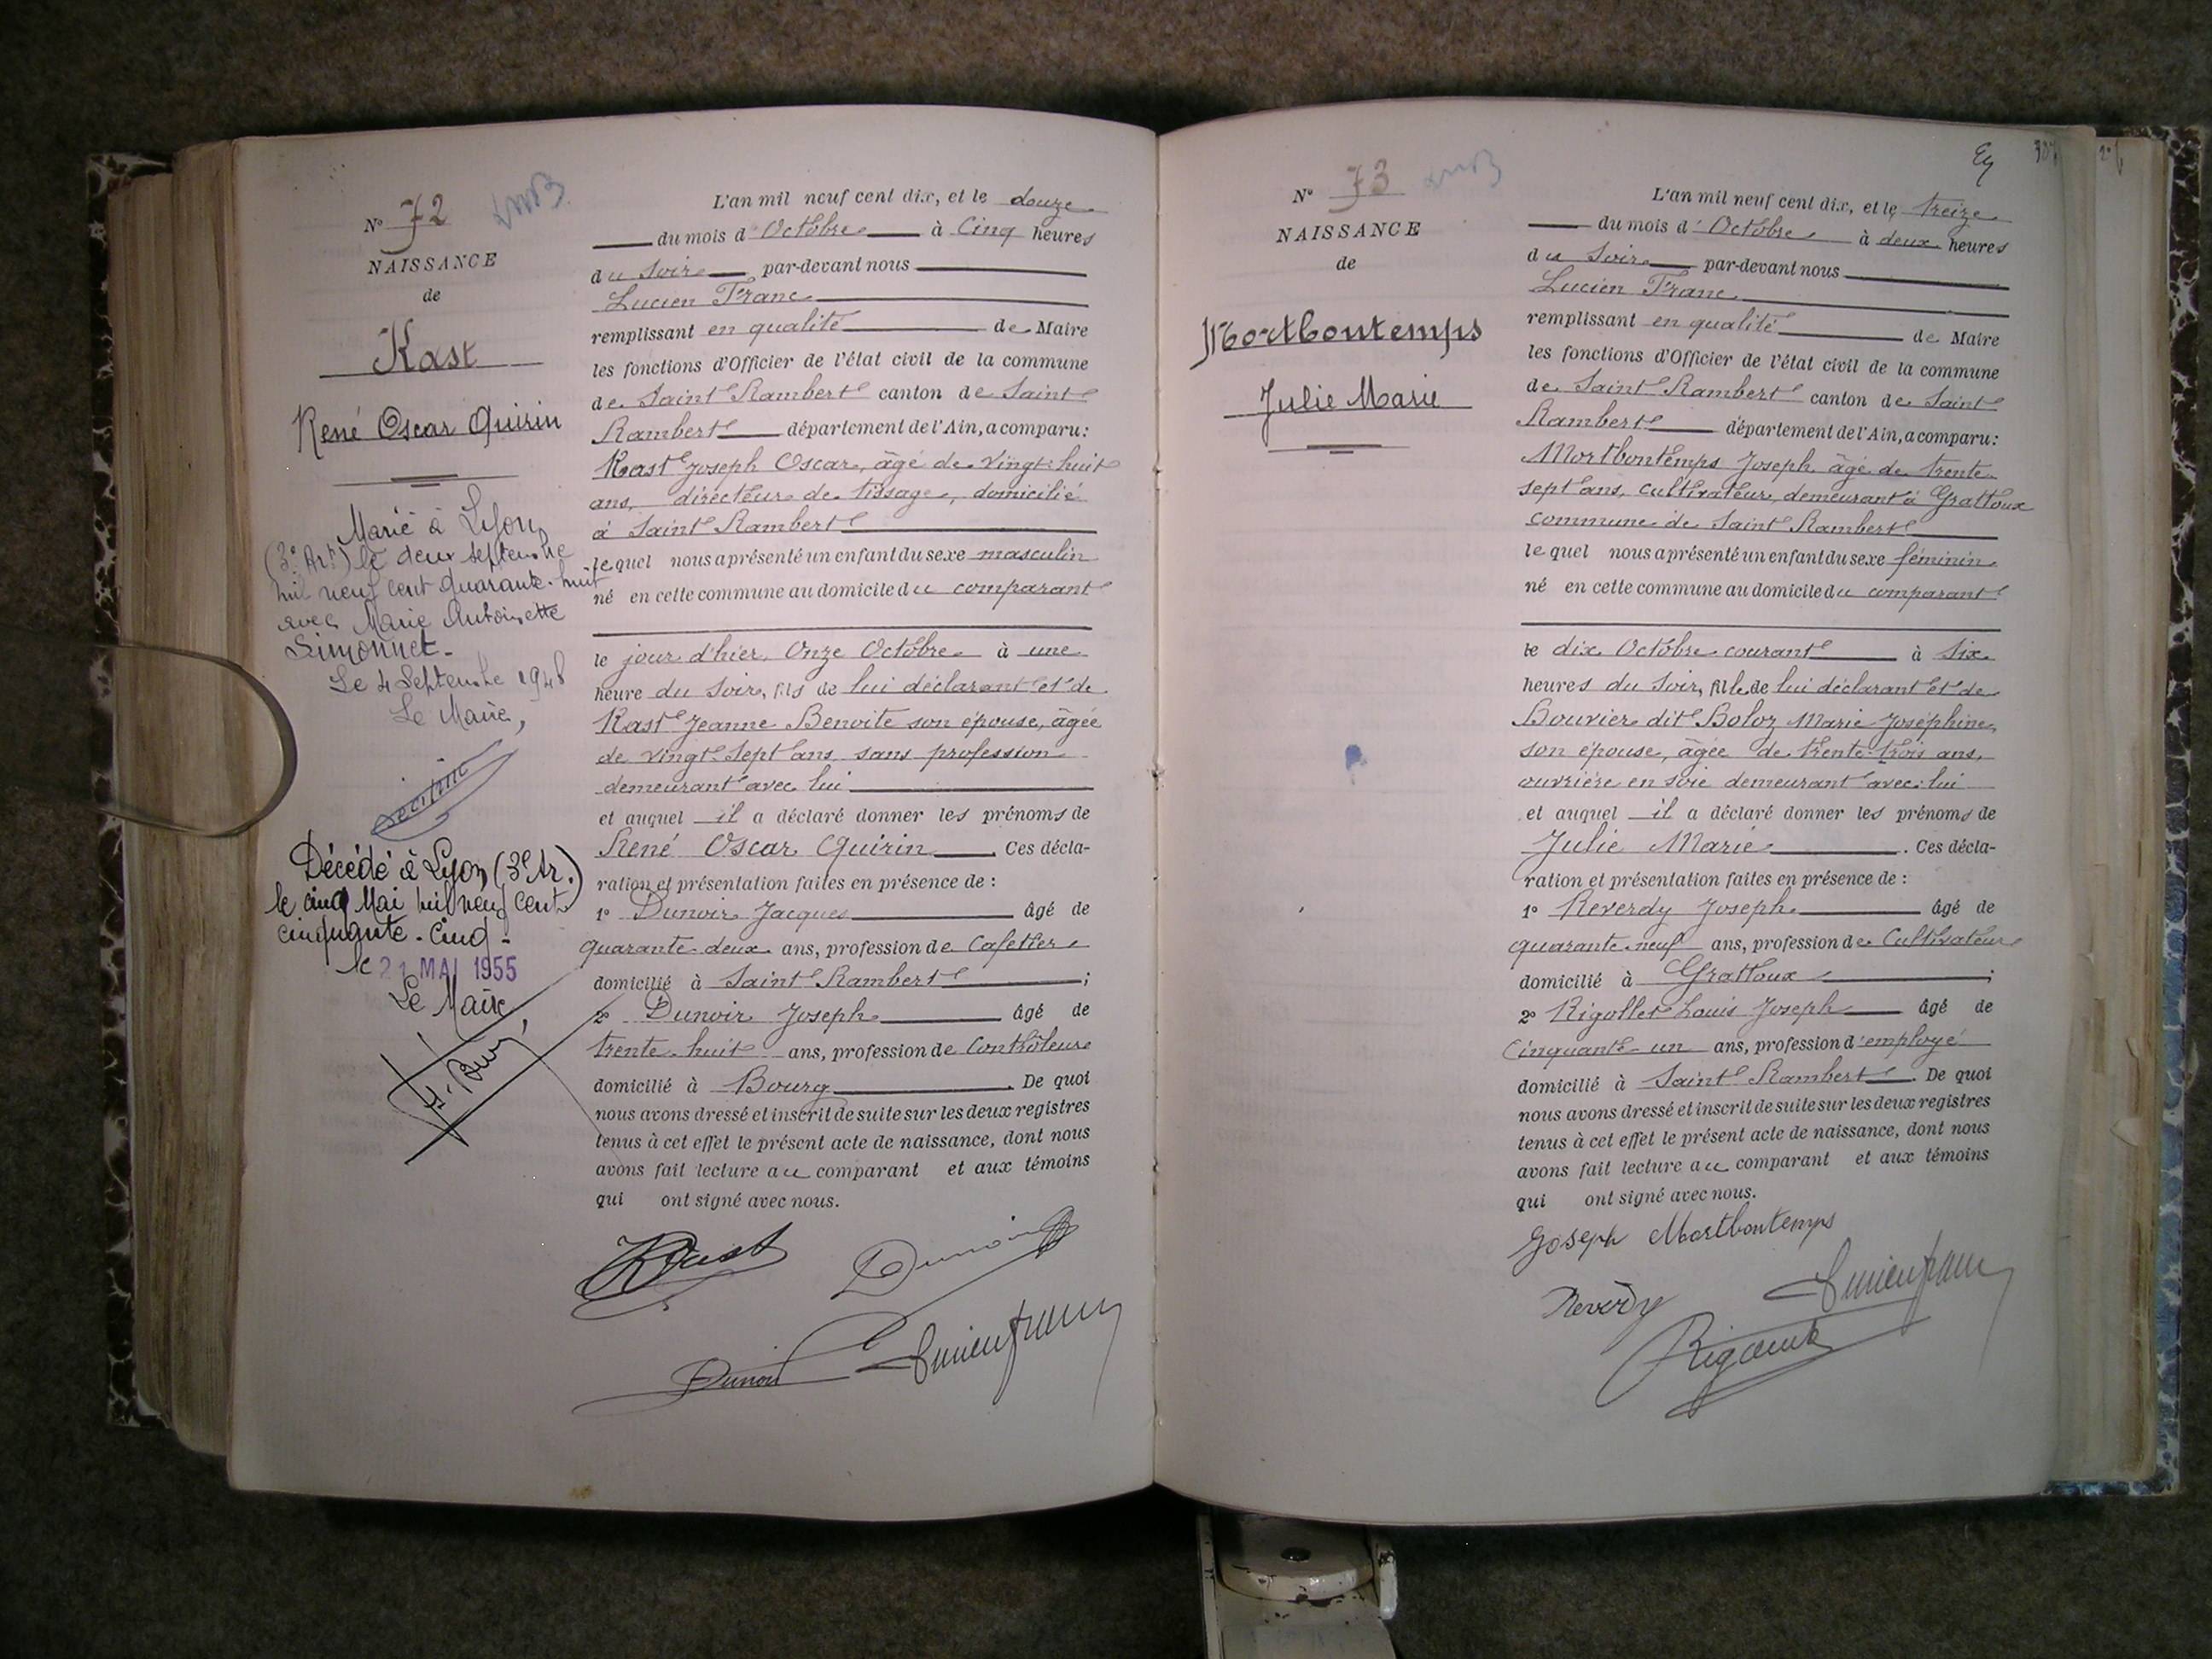 N° 72
NAISSANCE
de
Kast
René Oscar Quirin
Marié à Lyon
(3e Art) le deux septembre
mil neuf cent quarante-huit
avec Marie Antoinette
Simonnet-
Le 4 Septembre 1948
Le Maire,
Décédé à Lyon (3e Ar.)
le cinq Mai mil neuf cent
cinquante-cinq-
le 21 MAI 1955
Le Maire
L'an mil neuf cent dix, et le douze
du mois d'Octobre à Cinq heures
du Soir par-devant nous
Lucien Franc
remplissant en qualité de Maire
les fonctions d'Officier de l'état civil de la commune
de Saint Rambert canton de Saint
Rambert département de l'Ain, a comparu:
Kast Joseph Oscar, âgé de vingt-huit
ans, directeur de tissage, domicilié
à Saint Rambert
lequel nous a présenté un enfant du sexe masculin
né en cette commune au domicile du comparant
le jour d'hier, Onze Octobre à une
heure du Soir, fils de lui déclarant et de
Kast Jeanne Benoite son épouse, âgée
de vingt-sept ans sans profession
demeurant avec lui
et auquel il a déclaré donner les prénoms de
René Oscar Quirin. Ces décla-
ration et présentation faites en présence de :
1° Dunoir Jacques âgé de
quarante-deux ans, profession de Cafetier
domicilié à Saint Rambert ;
2° Dunoir Joseph âgé de
trente-huit ans, profession de Contrôleur
domicilié à Bourg. De quoi
nous avons dressé et inscrit de suite sur les deux registres
tenus à cet effet le présent acte de naissance, dont nous
avons fait lecture au comparant et aux témoins
qui ont signé avec nous.
Kast Dunoir
Dunoir Lucien Franc
N° 73
NAISSANCE
de
Mortbontemps
Julie Marie
L'an mil neuf cent dix, et le treize
du mois d'Octobre à deux heures
du Soir par-devant nous
Lucien Franc
remplissant en qualité de Maire
les fonctions d'Officier de l'état civil de la commune
de Saint Rambert canton de Saint
Rambert département de l'Ain, a comparu:
Mortbontemps Joseph âgé de trente
sept ans, cultivateur, demeurant à Grattoux
commune de Saint Rambert
lequel nous a présenté un enfant du sexe féminin
né en cette commune au domicile du comparant
le dix Octobre courant à Six
heures du Soir, fille de lui déclarant et de
Bouvier dit Boloz Marie Joséphine,
son épouse, âgée de trente-trois ans,
ouvrière en soie demeurant avec lui
et auquel il a déclaré donner les prénoms de
Julie Marie. Ces décla-
ration et présentation faites en présence de :
1° Reverdy Joseph âgé de
quarante-neuf ans, profession de Cultivateur
domicilié à Grattoux ;
2° Rigollet Louis Joseph âgé de
Cinquante-un ans, profession d'employé
domicilié à Saint Rambert. De quoi
nous avons dressé et inscrit de suite sur les deux registres
tenus à cet effet le présent acte de naissance, dont nous
avons fait lecture au comparant et aux témoins
qui ont signé avec nous.
Joseph Mortbontemps
Reverdy Lucien Franc